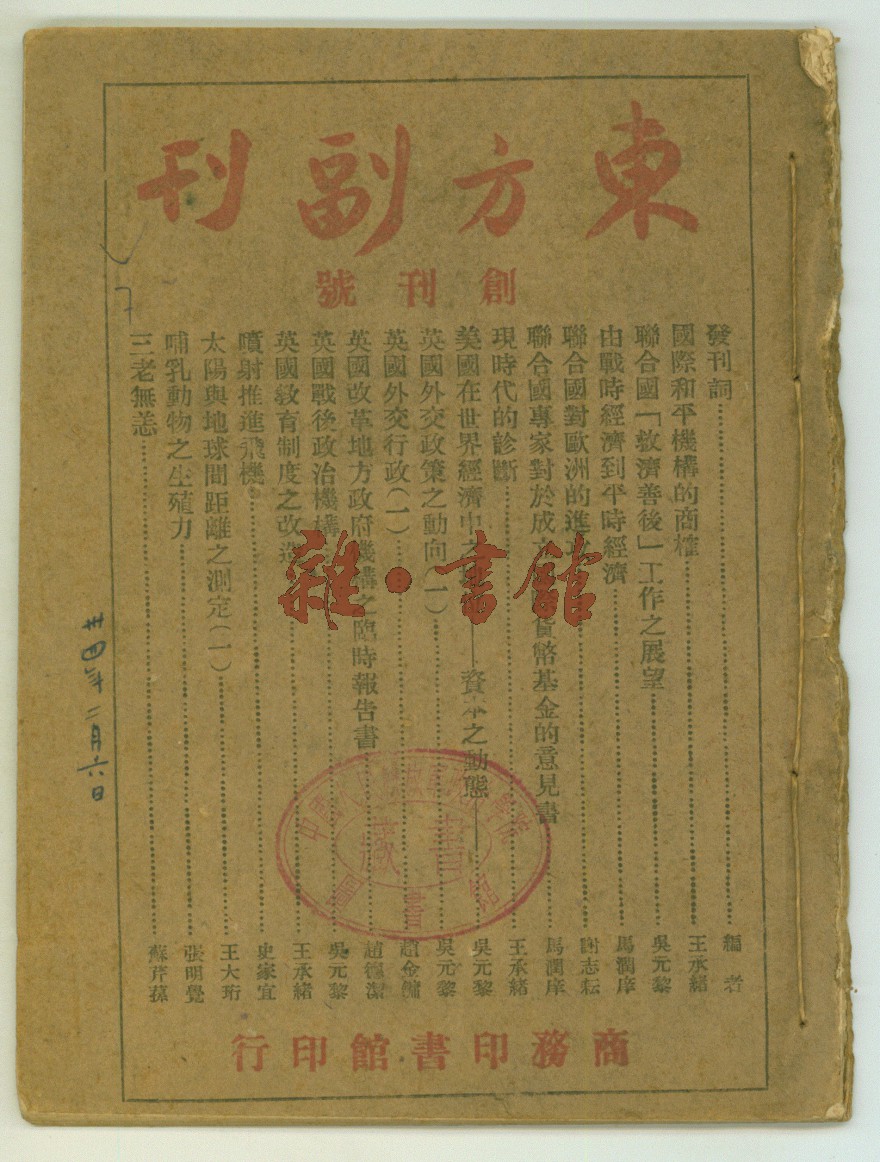 東方副刊
創刊號
發刊詞……編者
國際和平機構的商榷……王承緒
聯合國「救濟善後」工作之展望……吳元黎
由戰時經濟到平時經濟……馬潤庠
聯合國對歐洲的進攻……謝志耘
聯合國專家對於成立貨幣基金的意見書……馬潤庠
現時代的診斷……王承緒
美國在世界經濟中之——資本之動態——吳元黎
英國外交政策之動向(一)……吳元黎
英國外交行政(一)……趙金鏞
英國改革地方政府機構之臨時報告書……趙德潔
英國戰後政治機構……吳元黎
英國教育制度之改造……王承緒
噴射推進飛機……史家宜
太陽與地球間距離之測定(一)……王大珩
哺乳動物之生殖力……張明覺
三老無恙……蘇芹蓀
商務印書館印行
卅四年二月六日
雜·書館
藏書
圖書館